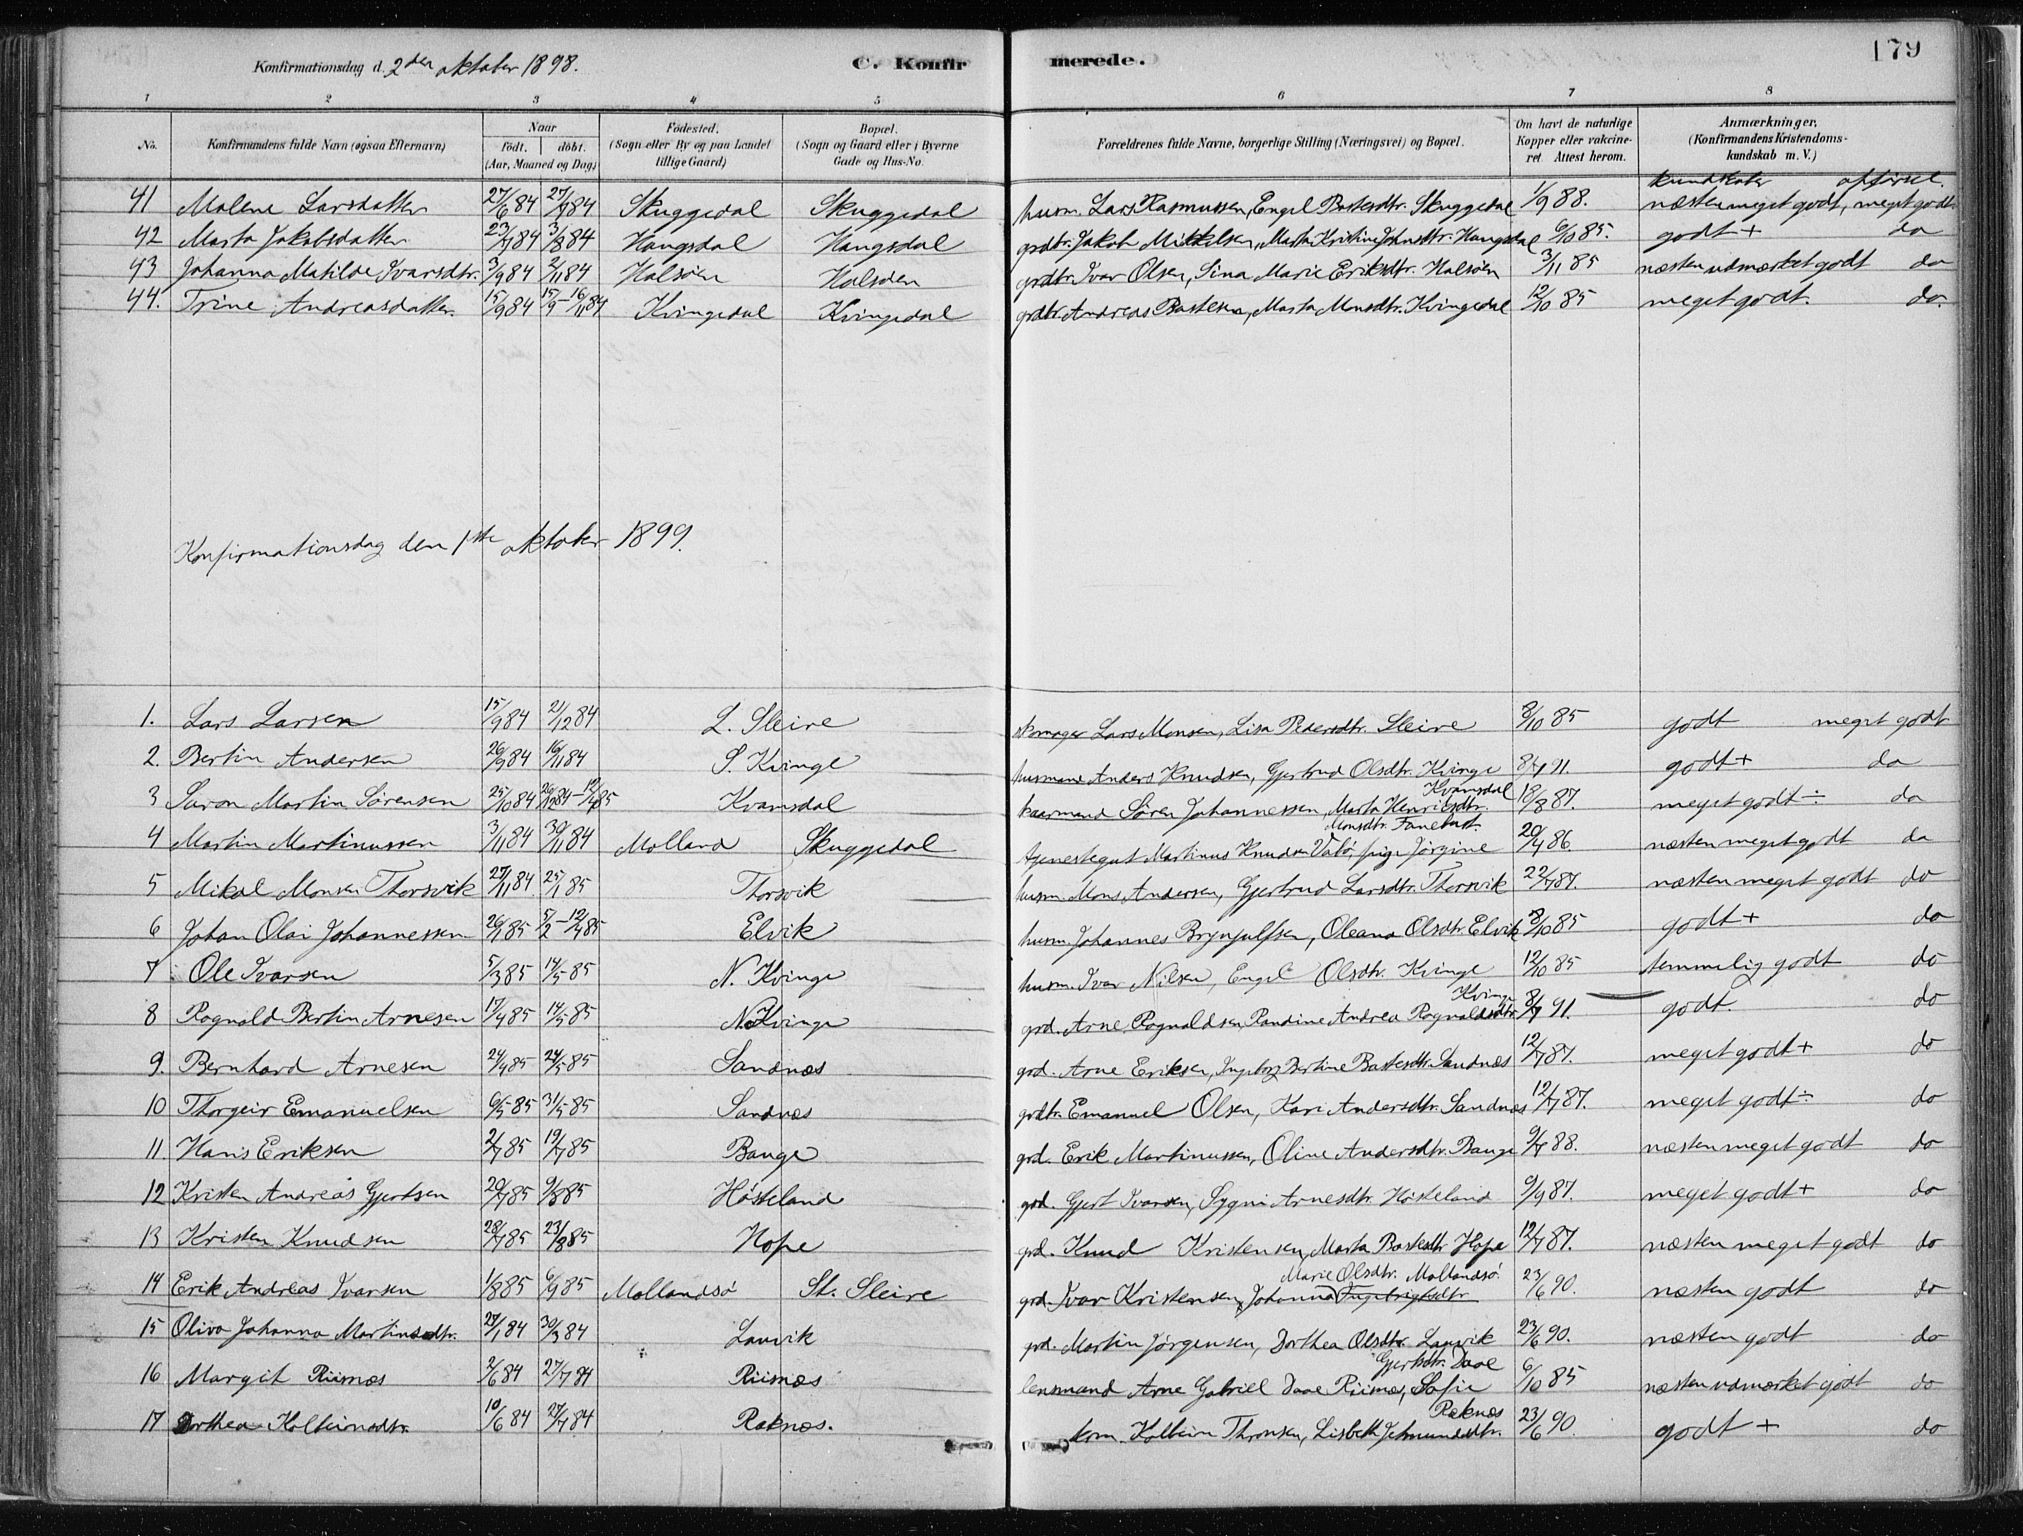 Konfirmationsdag d. 2den oktober 1898. C. Konfirmerede. 179
1 2 3 4 5 6 7 8
No. Konfirmandens fulde Navn (ogsaa Efternavn) Naar født. døbt. (Aar, Maaned og Dag) Fødested. (Sogn eller By og paa Landet tillige Gaard) Bopæl. (Sogn og Gaard eller i Byerne Gade og Hus-No. Forældrenes fulde Navne, borgerlige Stilling (Næringsvei) og Bopæl. Om havt de naturlige Kopper eller vakcineret Attest herom. Anmærkninger. (Konfirmandens Kristendomskundskab m. V.)
kundskaber opførsel.
41 Malene Larsdatter 27/6 84 27/7 84 Skuggedal Skuggedal husm. Lars Rasmussen, Engel Bastesdtr. Skuggedal 1/9 88. næsten meget godt, meget godt
42 Marta Jakobsdatter 23/7 84 3/8 84 Haugsdal Haugsdal grdbr. Jakob Mikkelsen, Marta Kristine Johnsdtr. Haugsdal 6/10 85. godt + do
43 Johanna Matilde Ivarsdtr. 3/9 84 2/11 84 Halsøen Halsøen grdbr. Ivar Olsen, Sina Marie Eriksdtr. Halsøen 3/11 85 næsten udmærket godt do
44. Trine Andreasdatter. 15/9 84 15/9-16/11 84 Kvingedal Kvingedal grdbr. Andreas Bastesen, Marta Monsdtr. Kvingedal 12/10 85 meget godt. do.
Konfirmationsdag den 1ste oktober 1899.
1. Lars Larsen 15/9 84 21/12 84 L. Sleire Lars Monsen, Lisa Pedersdtr. Sleire 8/10 85 godt meget godt
2. Bertin Andersen 26/9 84 16/11 84 S. Kvinge husmand Anders Knudsen, Gjertrud Olsdtr. Kvinge 8/7 91. godt + do
3 Søren Martin Sørensen 25/10 84 Kvamsdal kaarmand Søren Johannessen, Marta Henriksdtr. Kvamsdal 18/8 87. meget godt ÷ do
4 Martin Martinussen 3/11 84 30/11 84 Molland Skuggedal tjenestegut Martinus Knudsen Vabø, pige Jørgine Monsdtr. Fanebust. 20/7 86. næsten meget godt do
5 Mikal Monsen Thorsvik 27/11 84 25/1 85 Thorsvik husm. Mons Andersen, Gjertrud Larsdtr. Thorsvik 22/7 87. næsten meget godt do
6 Johan Olai Johannessen 26/1 85 5/2-12/4 85 Elvik husm. Johannes Brynjulfsen, Oleana Olsdtr. Elvik 8/10 85 godt + do
7 Ole Ivarsen 5/3 85 14/5 85 N. Kvinge husm. Ivar Nilsen, Engel Olsdtr. Kvinge 12/10 85 temmelig godt do
8 Rognald Bertin Arnesen 17/4 85 14/5 85 N. Kvinge grd. Arne Rognaldsen, Randine Andrea Rognaldsdtr. Kvinge 8/7 91. godt. do
9. Bernhard Arnesen 24/4 85 24/5 85 Sandnæs grd. Arne Eriksen, Ingeborg Bertine Bastesdtr. Sandnæs 12/7 87. meget godt + do
10 Thorgeir Emanuelsen 6/5 85 31/5 85 Sandnæs grdbr. Emanuel Olsen, Kari Andersdtr. Sandnæs 12/7 87. meget godt ÷ do
11. Hans Eriksen 2/7 85 19/7 85 Bauge grd. Erik Martinussen, Oline Andersdtr. Bauge 9/7 88. næsten meget godt do
12 Kristen Andreas Gjertsen 20/7 85 9/8 85 Høsteland grd. Gjert Ivarsen, Sygni Arnesdtr. Høsteland 9/9 87. meget godt + do
13 Kristen Knudsen 28/7 85 23/8 85 Hope grd. Knud Kristensen, Marta Bastesdtr. Hope 12/7 87. næsten meget godt do
14 Erik Andreas Ivarsen 1/8 85 6/9 85 Mollandsø St. Sleire grd. Ivar Kristensen, Johanna Ingebrigtsdtr Marie Olsdtr. Mollandsø. 23/6 90. næsten godt do
15 Oliva Johanna Martinsdtr. 29/1 84 30/3 84 Lauvik grd. Martin Jørgensen, Dorthea Olsdtr. Lauvik 23/6 90. næsten godt do
16 Margit Riisnæs 2/6 84 27/7 84 Riisnæs lensmand Arne Gabriel Daae Riisnæs, Sofie Gjertsdtr. Daae 6/10 85 næsten udmærket godt do
17 Dorthea Kolbeinsdtr. 10/6 84 27/7 84 Raknæs. Kolbein Thronsen, Lisbeth Jetmundsdtr. Raknæs 23/6 90. godt + do